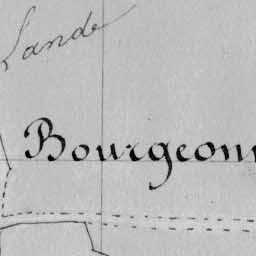 Lande
Bourgeonn